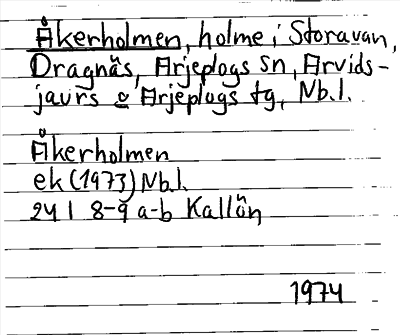 Åkerholmen, holme i Storavan,
Dragnäs, Arjeplogs sn, Arvids-
jaurs o Arjeplogs tg, Nb.l.
Åkerholmen
ek (1973) Nb.l.
24 I 8-9 a-b Kallön
1974